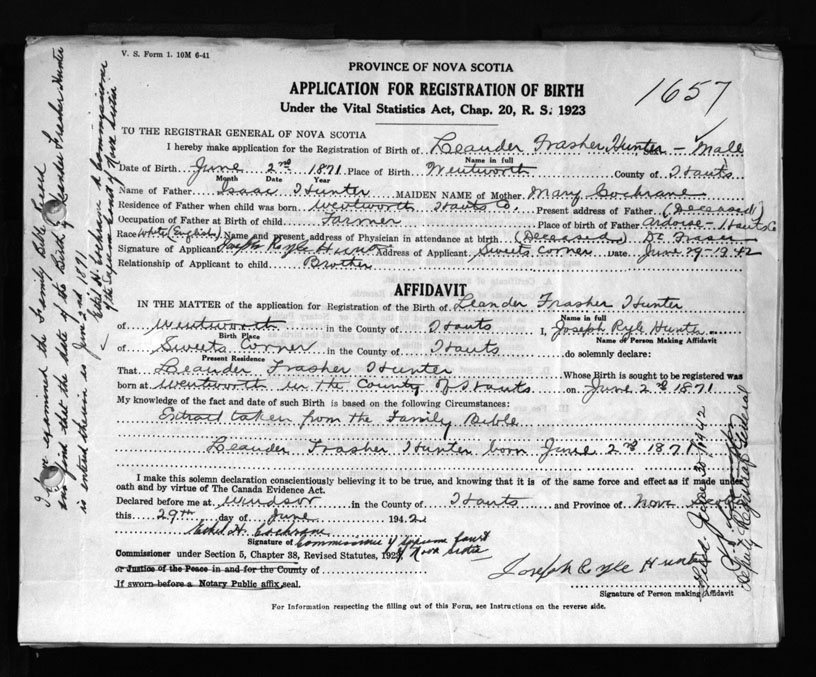 V. S. Form 1. 10M 6-41
PROVINCE OF NOVA SCOTIA
APPLICATION FOR REGISTRATION OF BIRTH
Under the Vital Statistics Act, Chap. 20, R. S. 1923
1657
TO THE REGISTRAR GENERAL OF NOVA SCOTIA
I hereby make application for the Registration of Birth of Leander Frasher Hunter - Male
Name in full
Date of Birth June 2nd 1871 Place of Birth Wentworth County of Hants
Month Date Year
Name of Father Isaac Hunter MAIDEN NAME of Mother Mary Cochrane
Residence of Father when child was born Wentworth Hants Co. Present address of Father (Deceased)
Occupation of Father at Birth of child Farmer Place of birth of Father Ardoise - Hants Co
Race White (English) Name and present address of Physician in attendance at birth (Deceased) Dr.
Signature of Applicant Joseph Ryle Hunter Address of Applicant Sweets Corner Date June 29-1942
Relationship of Applicant to child Brother
AFFIDAVIT
IN THE MATTER of the application for Registration of the Birth of Leander Frasher Hunter
Name in full
of Wentworth in the County of Hants I, Joseph Ryle Hunter
Birth Place Name of Person Making Affidavit
of Sweets Corner in the County of Hants do solemnly declare:
Present Residence
That Leander Frasher Hunter Whose Birth is sought to be registered was
born at Wentworth in the County of Hants on June 2nd 1871
My knowledge of the fact and date of such Birth is based on the following Circumstances:
Extract taken from the Family Bible
Leander Frasher Hunter born June 2nd 1871
I make this solemn declaration conscientiously believing it to be true, and knowing that it is of the same force and effect as if made under
oath and by virtue of The Canada Evidence Act.
Declared before me at Windsor in the County of Hants and Province of Nova Scotia
this 29th day of June 1942
Ethel H. Cochrane
Signature of Commissioner of Supreme Court
Commissioner under Section 5, Chapter 38, Revised Statutes, 1923 of Nova Scotia
or Justice of the Peace in and for the County of
If sworn before a Notary Public affix seal.
Joseph Ryle Hunter
Signature of Person making Affidavit
For Information respecting the filling out of this Form, see Instructions on the reverse side.
I have examined the Family Bible record
and find that the date of the Birth of Leander Frasher Hunter
is entered therein as June 2nd 1871
Ethel H. Cochrane A Commissioner
of the Supreme Court of Nova Scotia
Filed June 30/1942
Deputy Registrar General